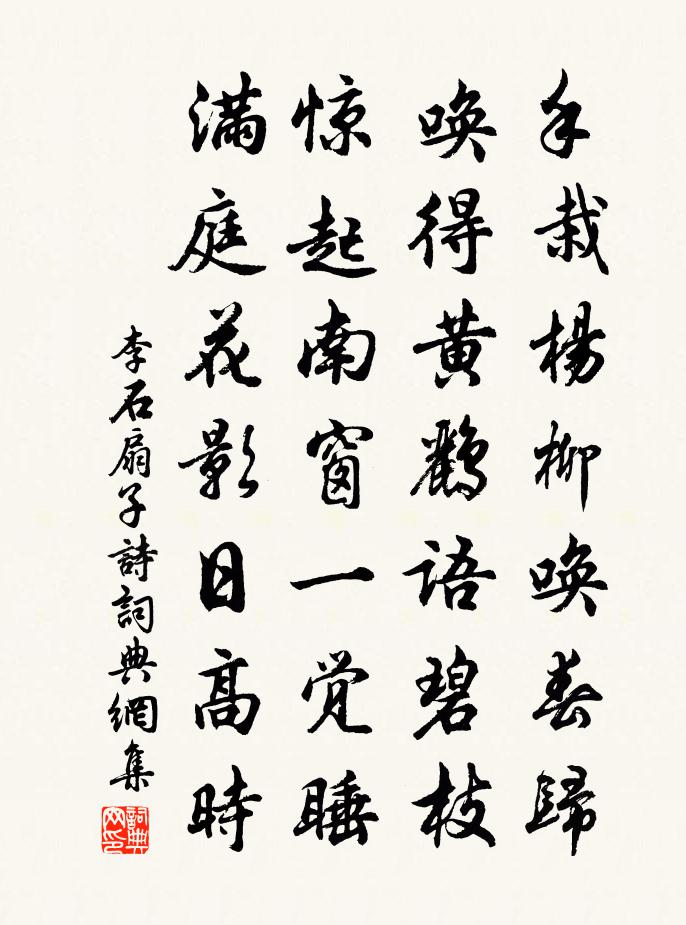 手栽楊柳喚春歸
喚得黃鸝語碧枝
惊起南窗一覚睡
滿庭花影日高時
李石扇子詩詞典網集
詞典网印